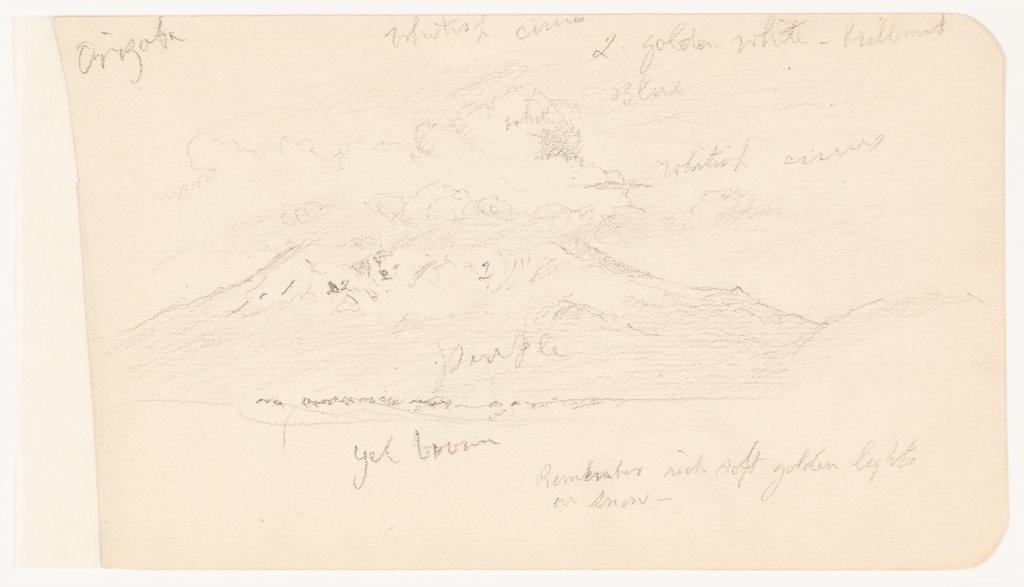 Orizaba
whitish cirrus
2. golden white - brilliant
Blue
white
whitish cirrus
2
purple
yel brown
Remember rich soft golden lights
on snow -